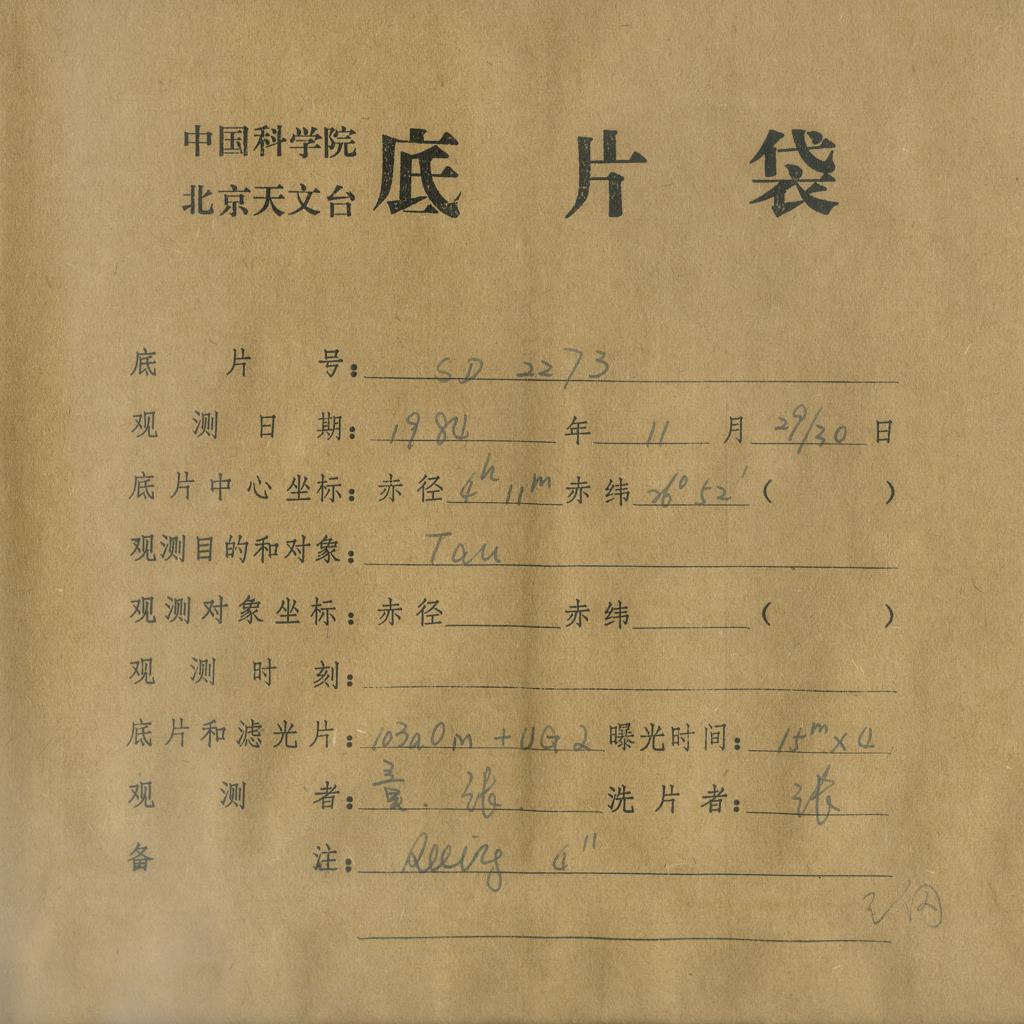 中国科学院
北京天文台
底片袋
底片号: SD 2273
观测日期: 1984年11月29/30日
底片中心坐标: 赤径4h11m赤纬26°52′( )
观测目的和对象: Tau
观测对象坐标: 赤径 赤纬 ( )
观测时刻:
底片和滤光片: 103aOm+UG2 曝光时间: 15m×4
观测者: 张 洗片者: 张
备注: Seeing 4"